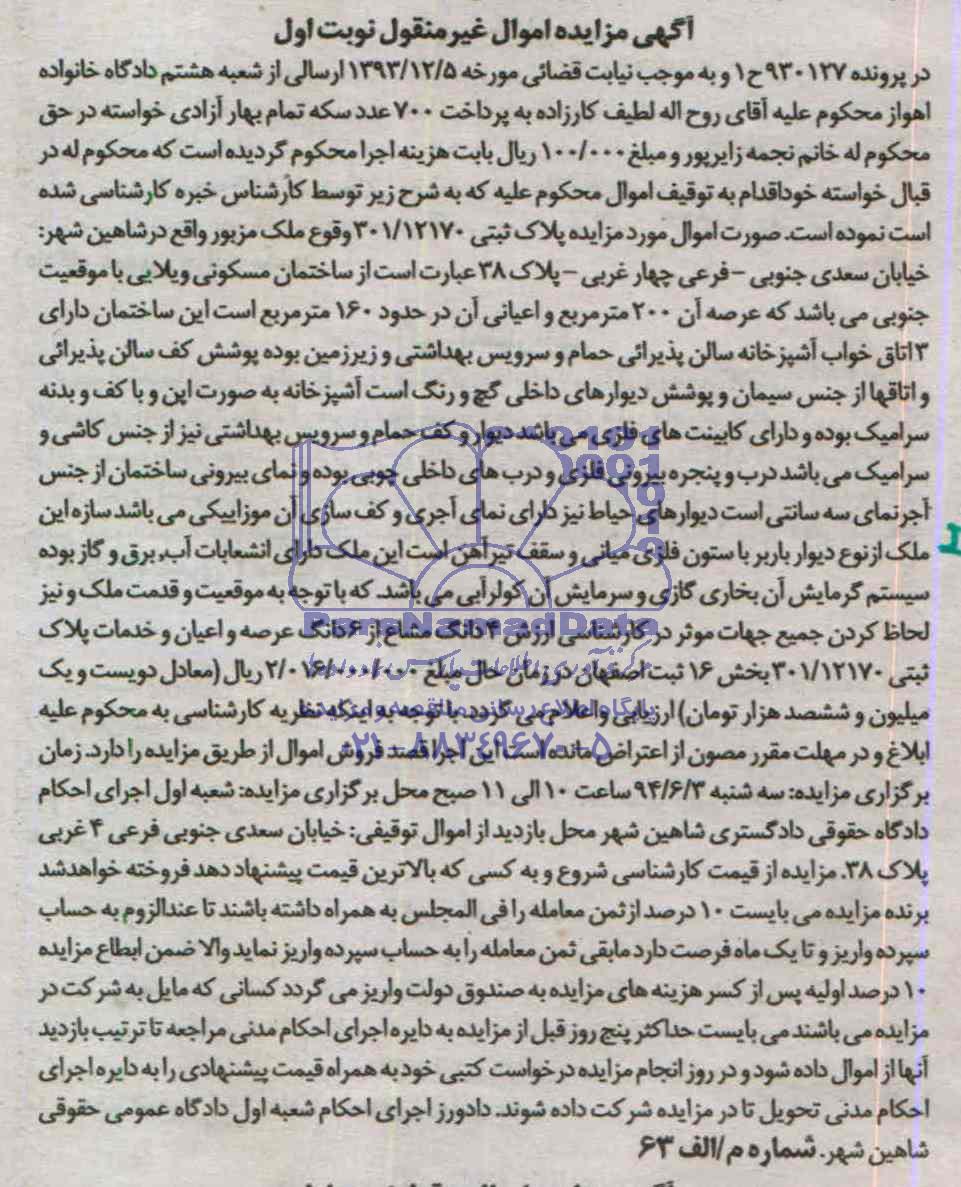 آگهی مزایده اموال غیر منقول نوبت اول
در پرونده ۹۳۰۱۲۷ح۱ و به موجب نیابت قضائی مورخه ۱۳۹۳/۱۲/۵ ارسالی از شعبه هشتم دادگاه خانواده
اهواز محکوم علیه آقای روح اله لطیف کارزاده به پرداخت ۷۰۰ عدد سکه تمام بهار آزادی خواسته در حق
محکوم له خانم نجمه زایرپور و مبلغ ۱۰۰/۰۰۰ ریال بابت هزینه اجرا محکوم گردیده است که محکوم له در
قبال خواسته خوداقدام به توقیف اموال محکوم علیه که به شرح زیر توسط کارشناس خبره کارشناسی شده
است نموده است. صورت اموال مورد مزایده پلاک ثبتی ۳۰۱/۱۲۱۷۰ وقوع ملک مزبور واقع درشاهین شهر:
خیابان سعدی جنوبی – فرعی چهار غربی – پلاک ۳۸ عبارت است از ساختمان مسکونی ویلایی با موقعیت
جنوبی می باشد که عرصه آن ۲۰۰ مترمربع و اعیانی آن در حدود ۱۶۰ مترمربع است این ساختمان دارای
۳ اتاق خواب آشپزخانه سالن پذیرائی حمام و سرویس بهداشتی و زیرزمین بوده پوشش کف سالن پذیرائی
و اتاقها از جنس سیمان و پوشش دیوارهای داخلی گچ و رنگ است آشپزخانه به صورت اپن و با کف و بدنه
سرامیک بوده و دارای کابینت های فلزی می باشد دیوار و کف حمام و سرویس بهداشتی نیز از جنس کاشی و
سرامیک می باشد درب و پنجره بیرونی فلزی و درب های داخلی چوبی بوده و نمای بیرونی ساختمان از جنس
آجرنمای سه سانتی است دیوارهای حیاط نیز دارای نمای آجری و کف سازی آن موزاییکی می باشد سازه این
ملک از نوع دیوار باربر با ستون فلزی میانی و سقف تیرآهن است این ملک دارای انشعابات آب، برق و گاز بوده
سیستم گرمایش آن بخاری گازی و سرمایش آن کولرآبی می باشد. که با توجه به موقعیت و قدمت ملک و نیز
ParsNamadData
لحاظ کردن جمیع جهات موثر در کارشناسی ارزش ۴ دانگ مشاع از ۶ دانگ عرصه و اعیان و خدمات پلاک
ثبتی ۳۰۱/۱۲۱۷۰ بخش ۱۶ ثبت اصفهان در زمان حال مبلغ ۲/۰۱۶/۰۰۰/۰۰۰ ریال (معادل دویست و یک
میلیون و ششصد هزار تومان) ارزیابی واعلام می گردد. با توجه به اینکه نظریه کارشناسی به محکوم علیه
ابلاغ و در مهلت مقرر مصون از اعتراض مانده است این اجرا قصد فروش اموال از طریق مزایده را دارد. زمان
۰۲۱-۸۸۳۴۹۶۷۰-۵
برگزاری مزایده: سه شنبه ۹۴/۶/۳ ساعت ۱۰ الی ۱۱ صبح محل برگزاری مزایده: شعبه اول اجرای احکام
دادگاه حقوقی دادگستری شاهین شهر محل بازدید از اموال توقیفی: خیابان سعدی جنوبی فرعی ۴ غربی
پلاک ۳۸. مزایده از قیمت کارشناسی شروع و به کسی که بالاترین قیمت پیشنهاد دهد فروخته خواهدشد
برنده مزایده می بایست ۱۰ درصد ازثمن معامله را فی المجلس به همراه داشته باشند تا عندالزوم به حساب
سپرده واریز و تا یک ماه فرصت دارد مابقی ثمن معامله را به حساب سپرده واریز نماید والا ضمن ابطاع مزایده
۱۰ درصد اولیه پس از کسر هزینه های مزایده به صندوق دولت واریز می گردد کسانی که مایل به شرکت در
مزایده می باشند می بایست حداکثر پنج روز قبل از مزایده به دایره اجرای احکام مدنی مراجعه تا ترتیب بازدید
آنها از اموال داده شود و در روز انجام مزایده درخواست کتبی خود به همراه قیمت پیشنهادی را به دایره اجرای
احکام مدنی تحویل تا در مزایده شرکت داده شوند. دادورز اجرای احکام شعبه اول دادگاه عمومی حقوقی
شاهین شهر. شماره م/الف ۶۳